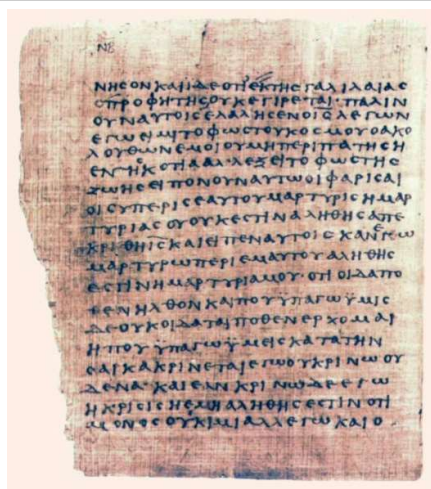 ΝΒ
ΝΗϹΟΝ ΚΑΙ ΪΔΕ ΟΤΙ ΕΚ ΤΗϹ ΓΑΛΙΛΑΙΑϹ
Ο ΠΡΟΦΗΤΗϹ ΟΥΚ ΕΓΙΡΕΤΑΙ · ΠΑΛΙΝ
ΟΥΝ ΑΥΤΟΙϹ ΕΛΑΛΗϹΕΝ Ο ΙϹ ΛΕΓΩΝ
ΕΓΩ ΕΙΜΙ ΤΟ ΦΩϹ ΤΟΥ ΚΟϹΜΟΥ Ο ΑΚΟ
ΛΟΥΘΩΝ ΕΜΟΙ ΟΥ ΜΗ ΠΕΡΙΠΑΤΗϹΗ
ΕΝ ΤΗ ϹΚΟΤΙΑ ΑΛΛ ΕΞΕΙ ΤΟ ΦΩϹ ΤΗϹ
ΖΩΗϹ ΕΙΠΟΝ ΟΥΝ ΑΥΤΩ ΟΙ ΦΑΡΙϹΑΙ
ΟΙ ϹΥ ΠΕΡΙ ϹΕΑΥΤΟΥ ΜΑΡΤΥΡΙϹ Η ΜΑΡ
ΤΥΡΙΑ ϹΟΥ ΟΥΚ ΕϹΤΙΝ ΑΛΗΘΗϹ ΑΠΕ
ΚΡΙΘΗ ΙϹ ΚΑΙ ΕΙΠΕΝ ΑΥΤΟΙϹ ΚΑΝ ΕΓΩ
ΜΑΡΤΥΡΩ ΠΕΡΙ ΕΜΑΥΤΟΥ ΑΛΗΘΗϹ
ΕϹΤΙΝ Η ΜΑΡΤΥΡΙΑ ΜΟΥ · ΟΤΙ ΟΙΔΑ ΠΟ
ΘΕΝ ΗΛΘΟΝ ΚΑΙ ΠΟΥ ΫΠΑΓΩ ΫΜΙϹ
ΔΕ ΟΥΚ ΟΙΔΑΤΑΙ ΠΟΘΕΝ ΕΡΧΟΜΑΙ
Η ΠΟΥ ΫΠΑΓΩ ΫΜΕΙϹ ΚΑΤΑ ΤΗΝ
ϹΑΡΚΑ ΚΡΙΝΕΤΑΙ ΕΓΩ ΟΥ ΚΡΙΝΩ ΟΥ
ΔΕΝΑ · ΚΑΙ ΕΑΝ ΚΡΙΝΩ ΔΕ ΕΓΩ
Η ΚΡΙϹΙϹ Η ΕΜΗ ΑΛΗΘΗϹ ΕϹΤΙΝ ΟΤΙ
ΜΟΝΟϹ ΟΥΚ ΙΜΙ ΑΛΛ ΕΓΩ ΚΑΙ Ο